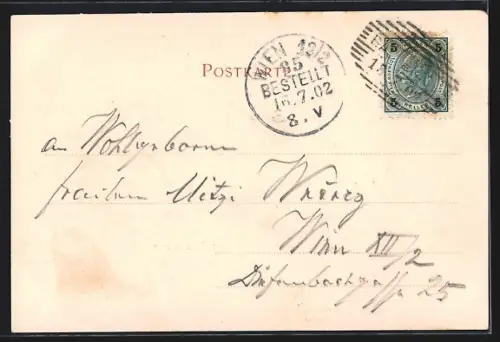 POSTKARTE
WIEN 12/2
85
BESTELLT
16.7.02
8.V
5 5
5 5
HELLER
an Wohlgeborne
Fräulein Mitzi
Wien XII/2
Diefenbachgasse 25